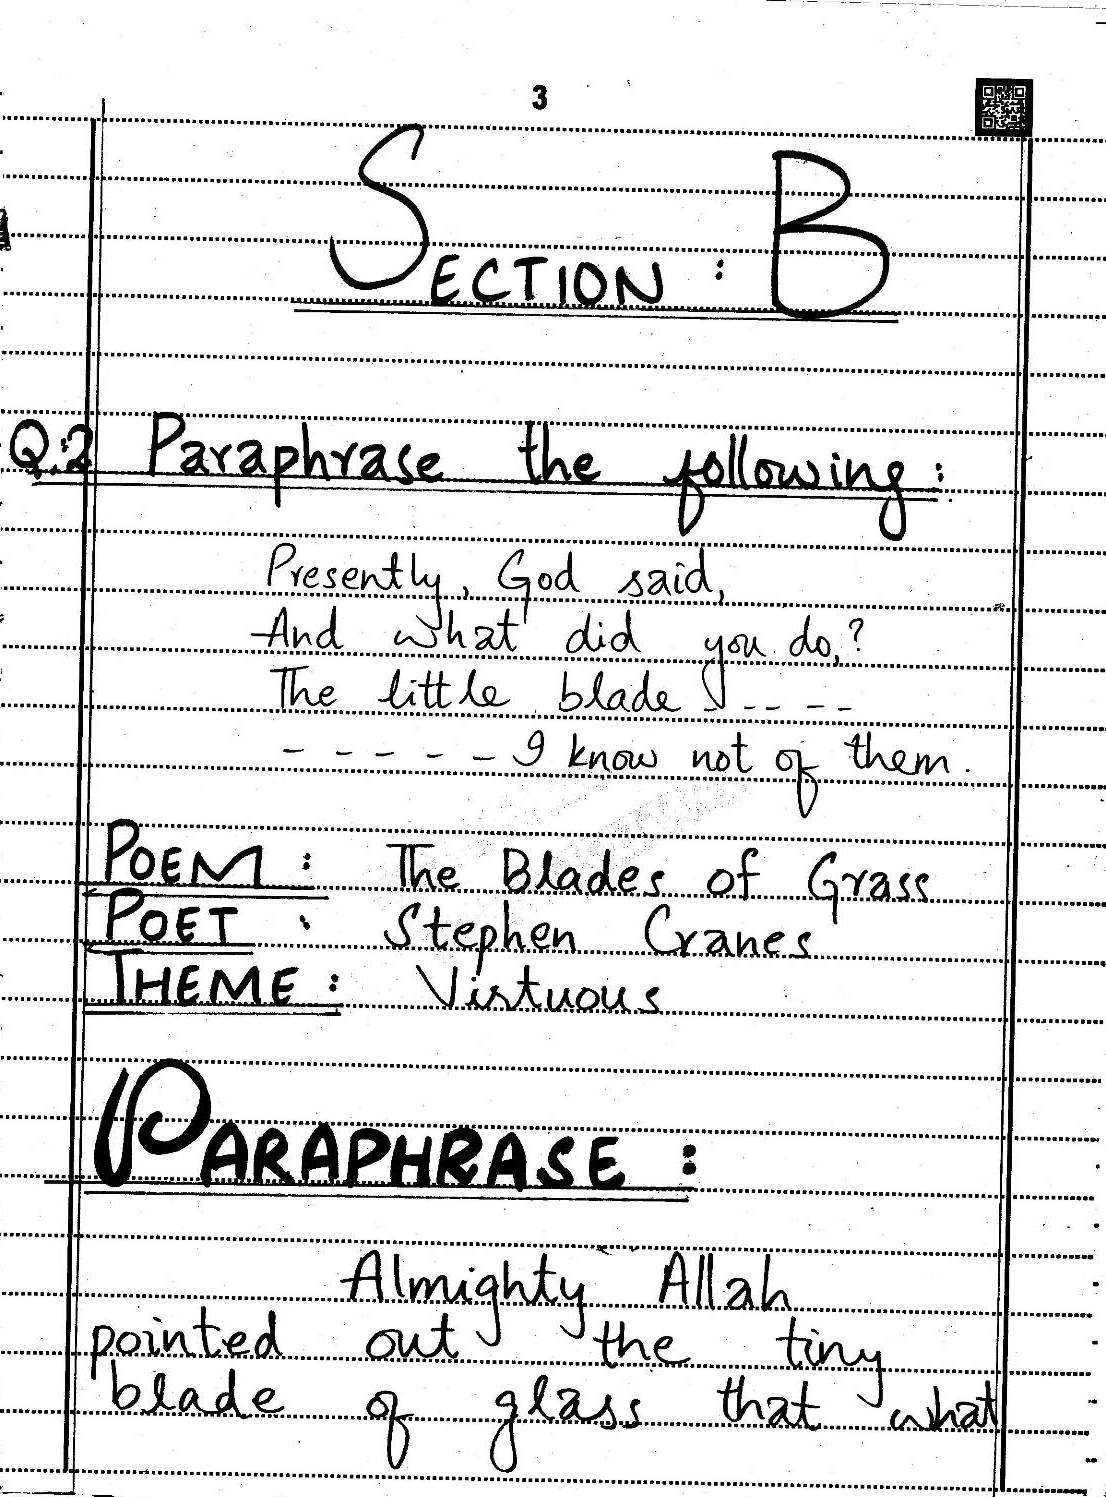 3
SECTION : B
Q:2 Paraphrase the following:
Presently, God said,
And what did you do,?
The little blade - - - - -
- - - - - I know not of them.
POEM : The Blades of Grass
POET : Stephen Cranes
THEME : Virtuous
PARAPHRASE :
Almighty Allah
pointed out the tiny
blade of glass that what